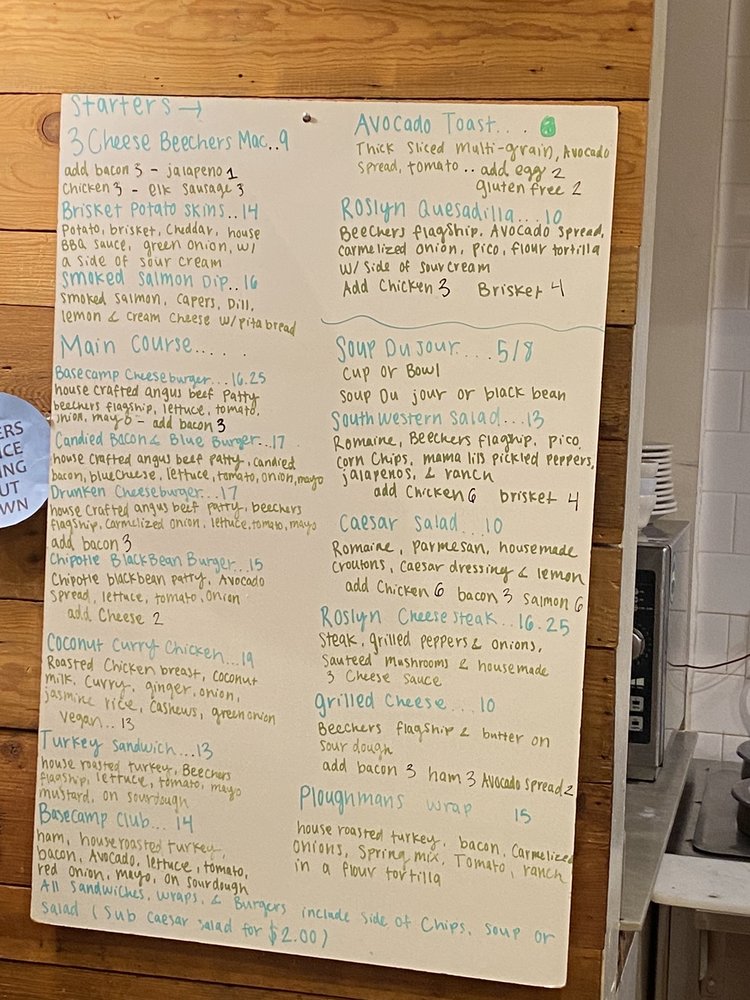 Starters →
3 Cheese Beechers Mac..9
add bacon 3 - jalapeno 1
Chicken 3 - elk sausage 3
Brisket Potato Skins..14
Potato, brisket, Cheddar, house
BBQ sauce, green onion, w/
a side of sour cream
Smoked Salmon Dip..16
smoked salmon, capers, Dill,
lemon & cream cheese w/pita bread
Main Course.....
Basecamp Cheeseburger...16.25
house crafted angus beef Patty
beechers flagship, lettuce, tomato,
onion, mayo - add bacon 3
Candied Bacon & Blue Burger..17
house crafted angus beef Patty, candied
bacon, blue cheese, lettuce, tomato, onion, mayo
Drunken Cheeseburger...17
house crafted angus beef patty, beechers
flagship, carmelized onion, lettuce, tomato, mayo
add bacon 3
Chipotle BlackBean Burger..15
Chipotle blackbean patty, Avocado
spread, lettuce, tomato, onion
add Cheese 2
Coconut Curry Chicken...19
Roasted Chicken breast, coconut
milk, curry, ginger, onion,
jasmine rice, cashews, green onion
vegan...13
Turkey Sandwich...13
house roasted turkey, Beechers
flagship, lettuce, tomato, mayo
mustard, on sourdough
Basecamp Club...14
ham, house roasted turkey,
bacon, Avocado, lettuce, tomato,
red onion, mayo, on sourdough
All Sandwiches, wraps, & Burgers include side of Chips, soup or
salad (sub caesar salad for $2.00)
Avocado Toast...
Thick sliced multi-grain, Avocado
spread, tomato.. add egg 2
gluten free 2
Roslyn Quesadilla...10
Beechers flagship, Avocado spread,
carmelized onion, pico, flour tortilla
w/ side of sour cream
Add Chicken 3 Brisket 4
Soup Du Jour...5/8
Cup or Bowl
Soup Du jour or black bean
Southwestern Salad...13
Romaine, Beechers flagship, pico,
corn chips, mama lils pickled peppers,
jalapenos, & ranch
add Chicken 6 brisket 4
Caesar Salad...10
Romaine, parmesan, housemade
croutons, caesar dressing & lemon
add Chicken 6 bacon 3 salmon 6
Roslyn Cheesesteak...16.25
Steak, grilled peppers & onions,
Sauteed mushrooms & housemade
3 Cheese sauce
grilled Cheese...10
Beechers flagship & butter on
sour dough
add bacon 3 ham 3 Avocado spread 2
Ploughmans wrap 15
house roasted turkey, bacon, Carmelized
onions, Spring mix, Tomato, ranch
in a flour tortilla